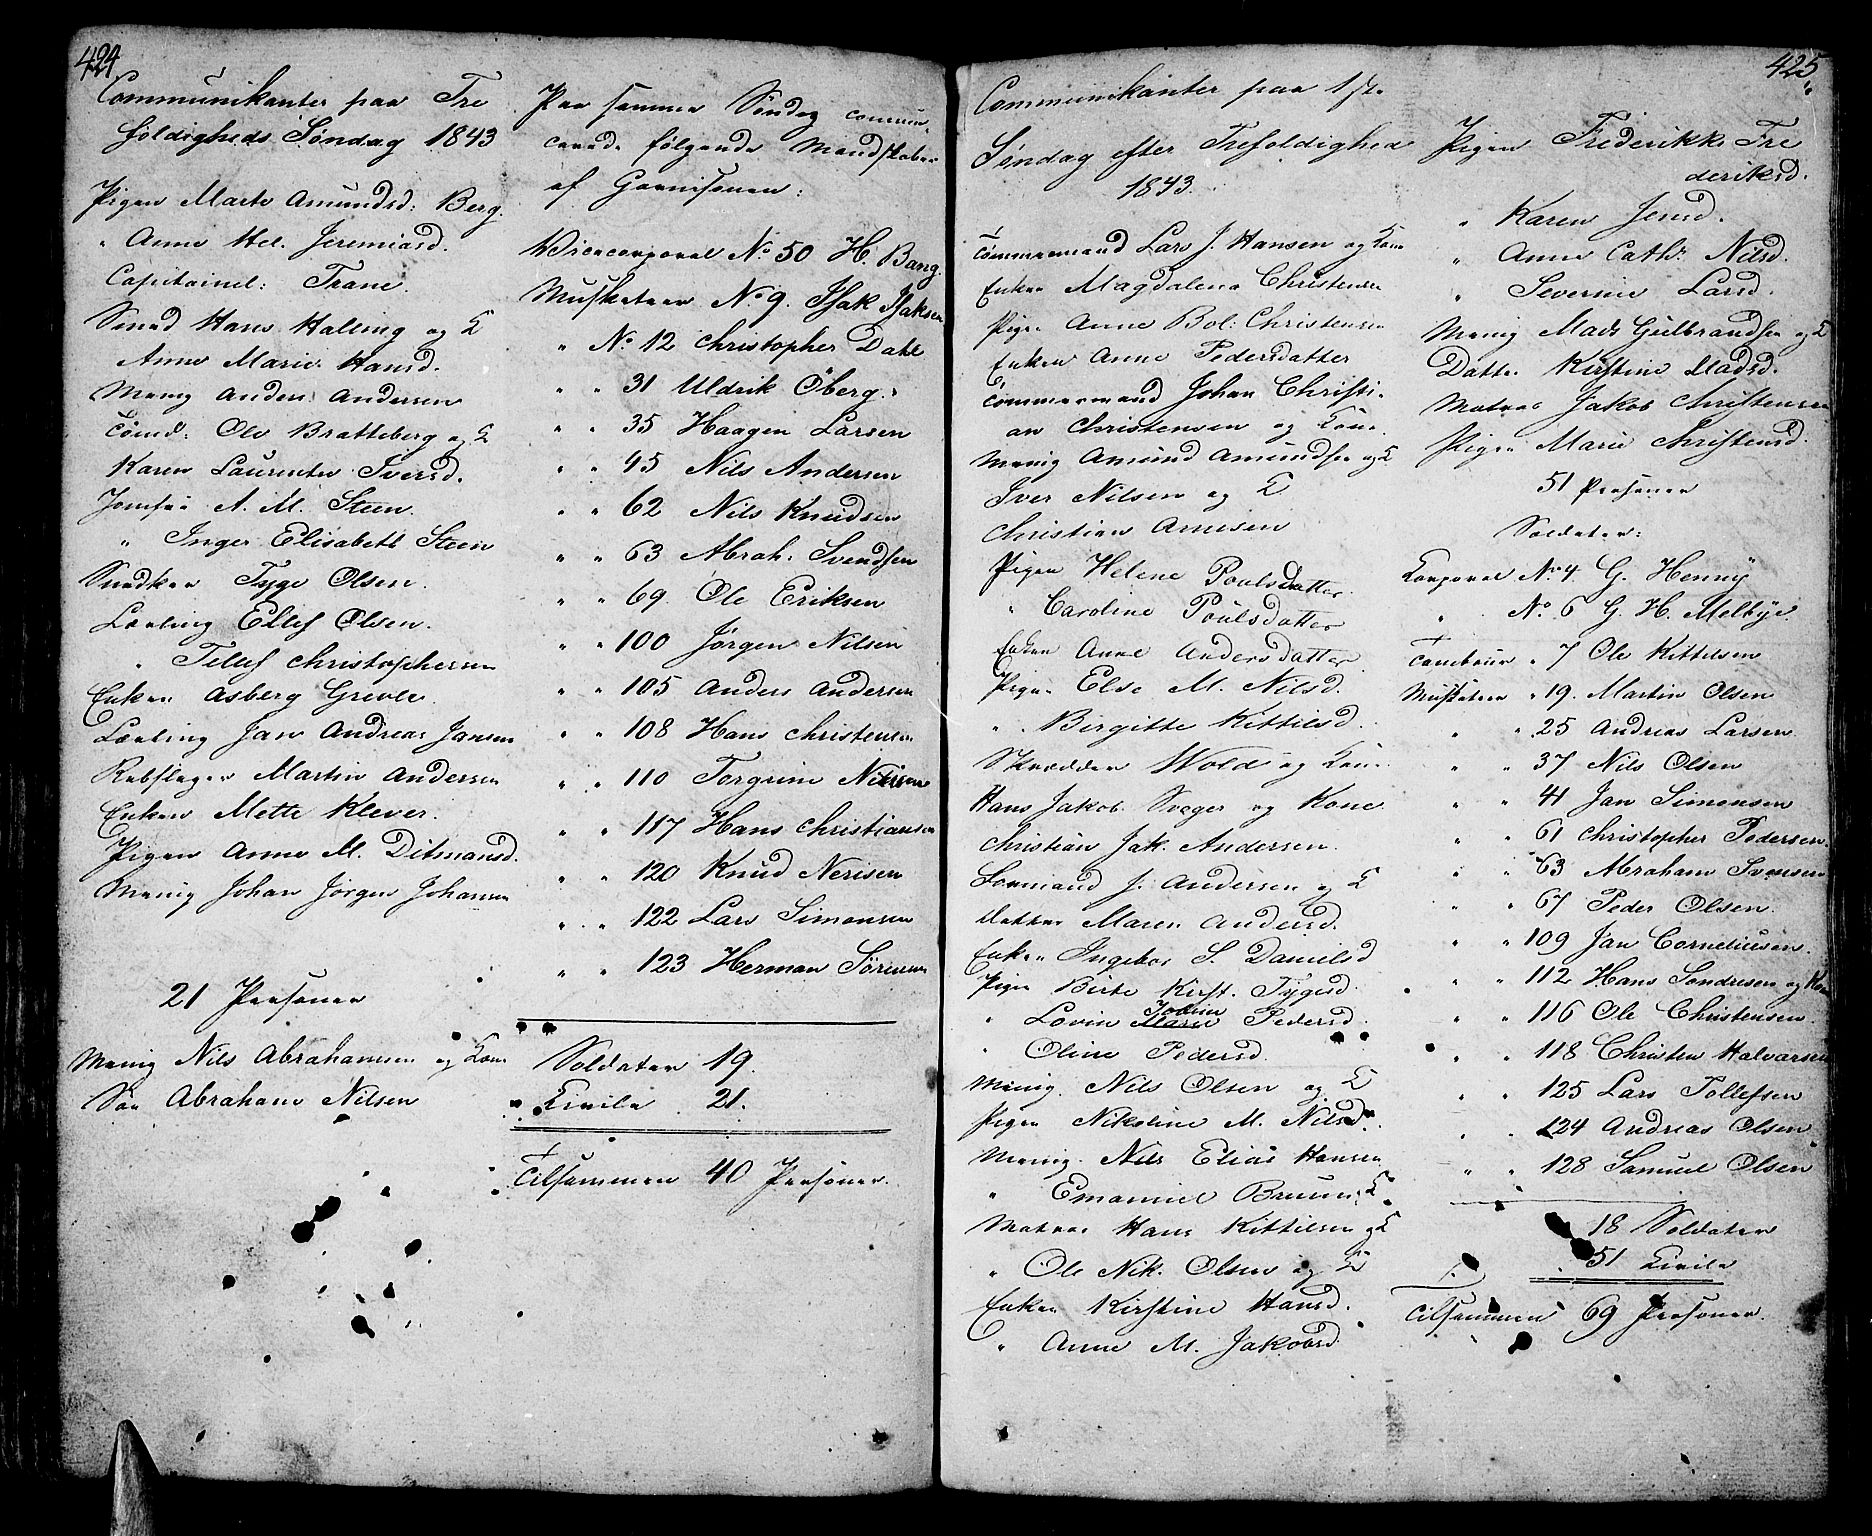 424
Communikanter paa Tre
foldigheds Søndag 1843
Pigen Marte Amundsd: Berg.
" Anne Hel. Jeremiasd.
Capitainel: Trane.
Smed Hans Halling og K
Anne Marie Hansd.
Menig Anders Andersen
Tømd: Ole Bratteberg og K
Karen Laurentse Iversd.
Jomfru A. M. Steen.
" Inger Elisabeth Steen
Snedker Tyge Olsen.
Lærling Ellef Olsen.
" Tellef Christophersen
Enken Asberg Greve
Lærling Jan Andreas Jansen
Rebslager Martin Andersen
Enken Mette Klever.
Pigen Anne M. Ditmansd.
Menig Johan Jørgen Johansen
21 Personer
Menig Nils Abrahamsen og Kone
Søn Abraham Nilsen
Paa samme Søndag commun
cerede følgende Mandskaber
af Garnisonen:
Vicecorporal No 50 H. Bang.
Musketeer No 9. Isak Isaksen
" No 12 Christopher Dahl
" " 31 Uldrik Øberg.
" " 35 Haagen Larsen
" " 45 Nils Andersen
" " 62 Nils Knudsen
" " 63 Abrah: Svendsen
" " 69 Ole Eriksen
" " 100 Jørgen Nilsen
" " 105 Anders Andersen
" " 108 Hans Christensen
" " 110 Torgrim Nilsen
" " 117 Hans Christiansen
" " 120 Knud Nerisen
" " 122 Lars Simonsen
" " 123 Herman Sørensen
Soldater 19.
Civile 21.
Tilsammen 40 Personer.
425
Communikanter paa 1ste
Søndag efter Trefoldighed
1843.
Tømmermand Lars J. Hansen og Kone
Enken Magdalena Christensen
Pigen Anne Bol: Christensen
Enken Anne Pedersdatter
Tømmermand Johan Christi-
an Christensen og Kone.
Menig Amund Amundsen og K
Iver Nilsen og K
Christian Arnesen
Pigen Helene Poulsdatter.
" Caroline Poulsdatter
Enken Anne Andersdatter
Pigen Else M. Nilsd.
" Birgitte Kittilsd.
Skrædder Wold og Kone
Hans Jakob Svager og Kone
Christian Jak. Andersen.
Formand J. Andersen og K
Datter Maren Andersd.
Enken Ingebor S. Danielsd
Pigen Birte Kirst. Tygesd.
" Lovise Maria Pedersd.
" Oline Pedersd.
Menig. Nils Olsen og K
Pigen Nikoline M. Nilsd.
Menig. Nils Elias Hansen
" Emanuel Bruun. K
Matros Hans Kittilsen og K
" Ole Nik. Olsen og K
Enken Kirstine Hansd.
" Anne M. Jakobsd.
Pigen Frederikke Fre
deriksd.
" Karen Jensd.
" Anne Cath: Nilsd.
" Severine Larsd.
Menig Mads Gulbrandsen og K
Datter Kirstine Madsd.
Matros Jakob Christensen
Pigen Marie Christensd.
51 Personer
Soldater:
Corporal No 4. G. Henny
" No 6 G. H. Melbye
Tambour " 7 Ole Kittelsen
Musketeer " 19. Martin Olsen
" " 25 Andreas Larsen
" " 37 Nils Olsen
" " 41 Jan Simonsen
" " 61 Christopher Pedersen
" " 63 Abraham Svensen
" " 67 Peder Olsen.
" " 109 Jan Corneliusen.
" " 112 Hans Sondresen og Kone
" " 116 Ole Christensen.
" " 118 Christen Halvorsen
" " 125 Lars Tollefsen
" " 124 Andreas Olsen
" " 128 Samuel Olsen
18 Soldater
51 Civile
Tilsammen 69 Personer.